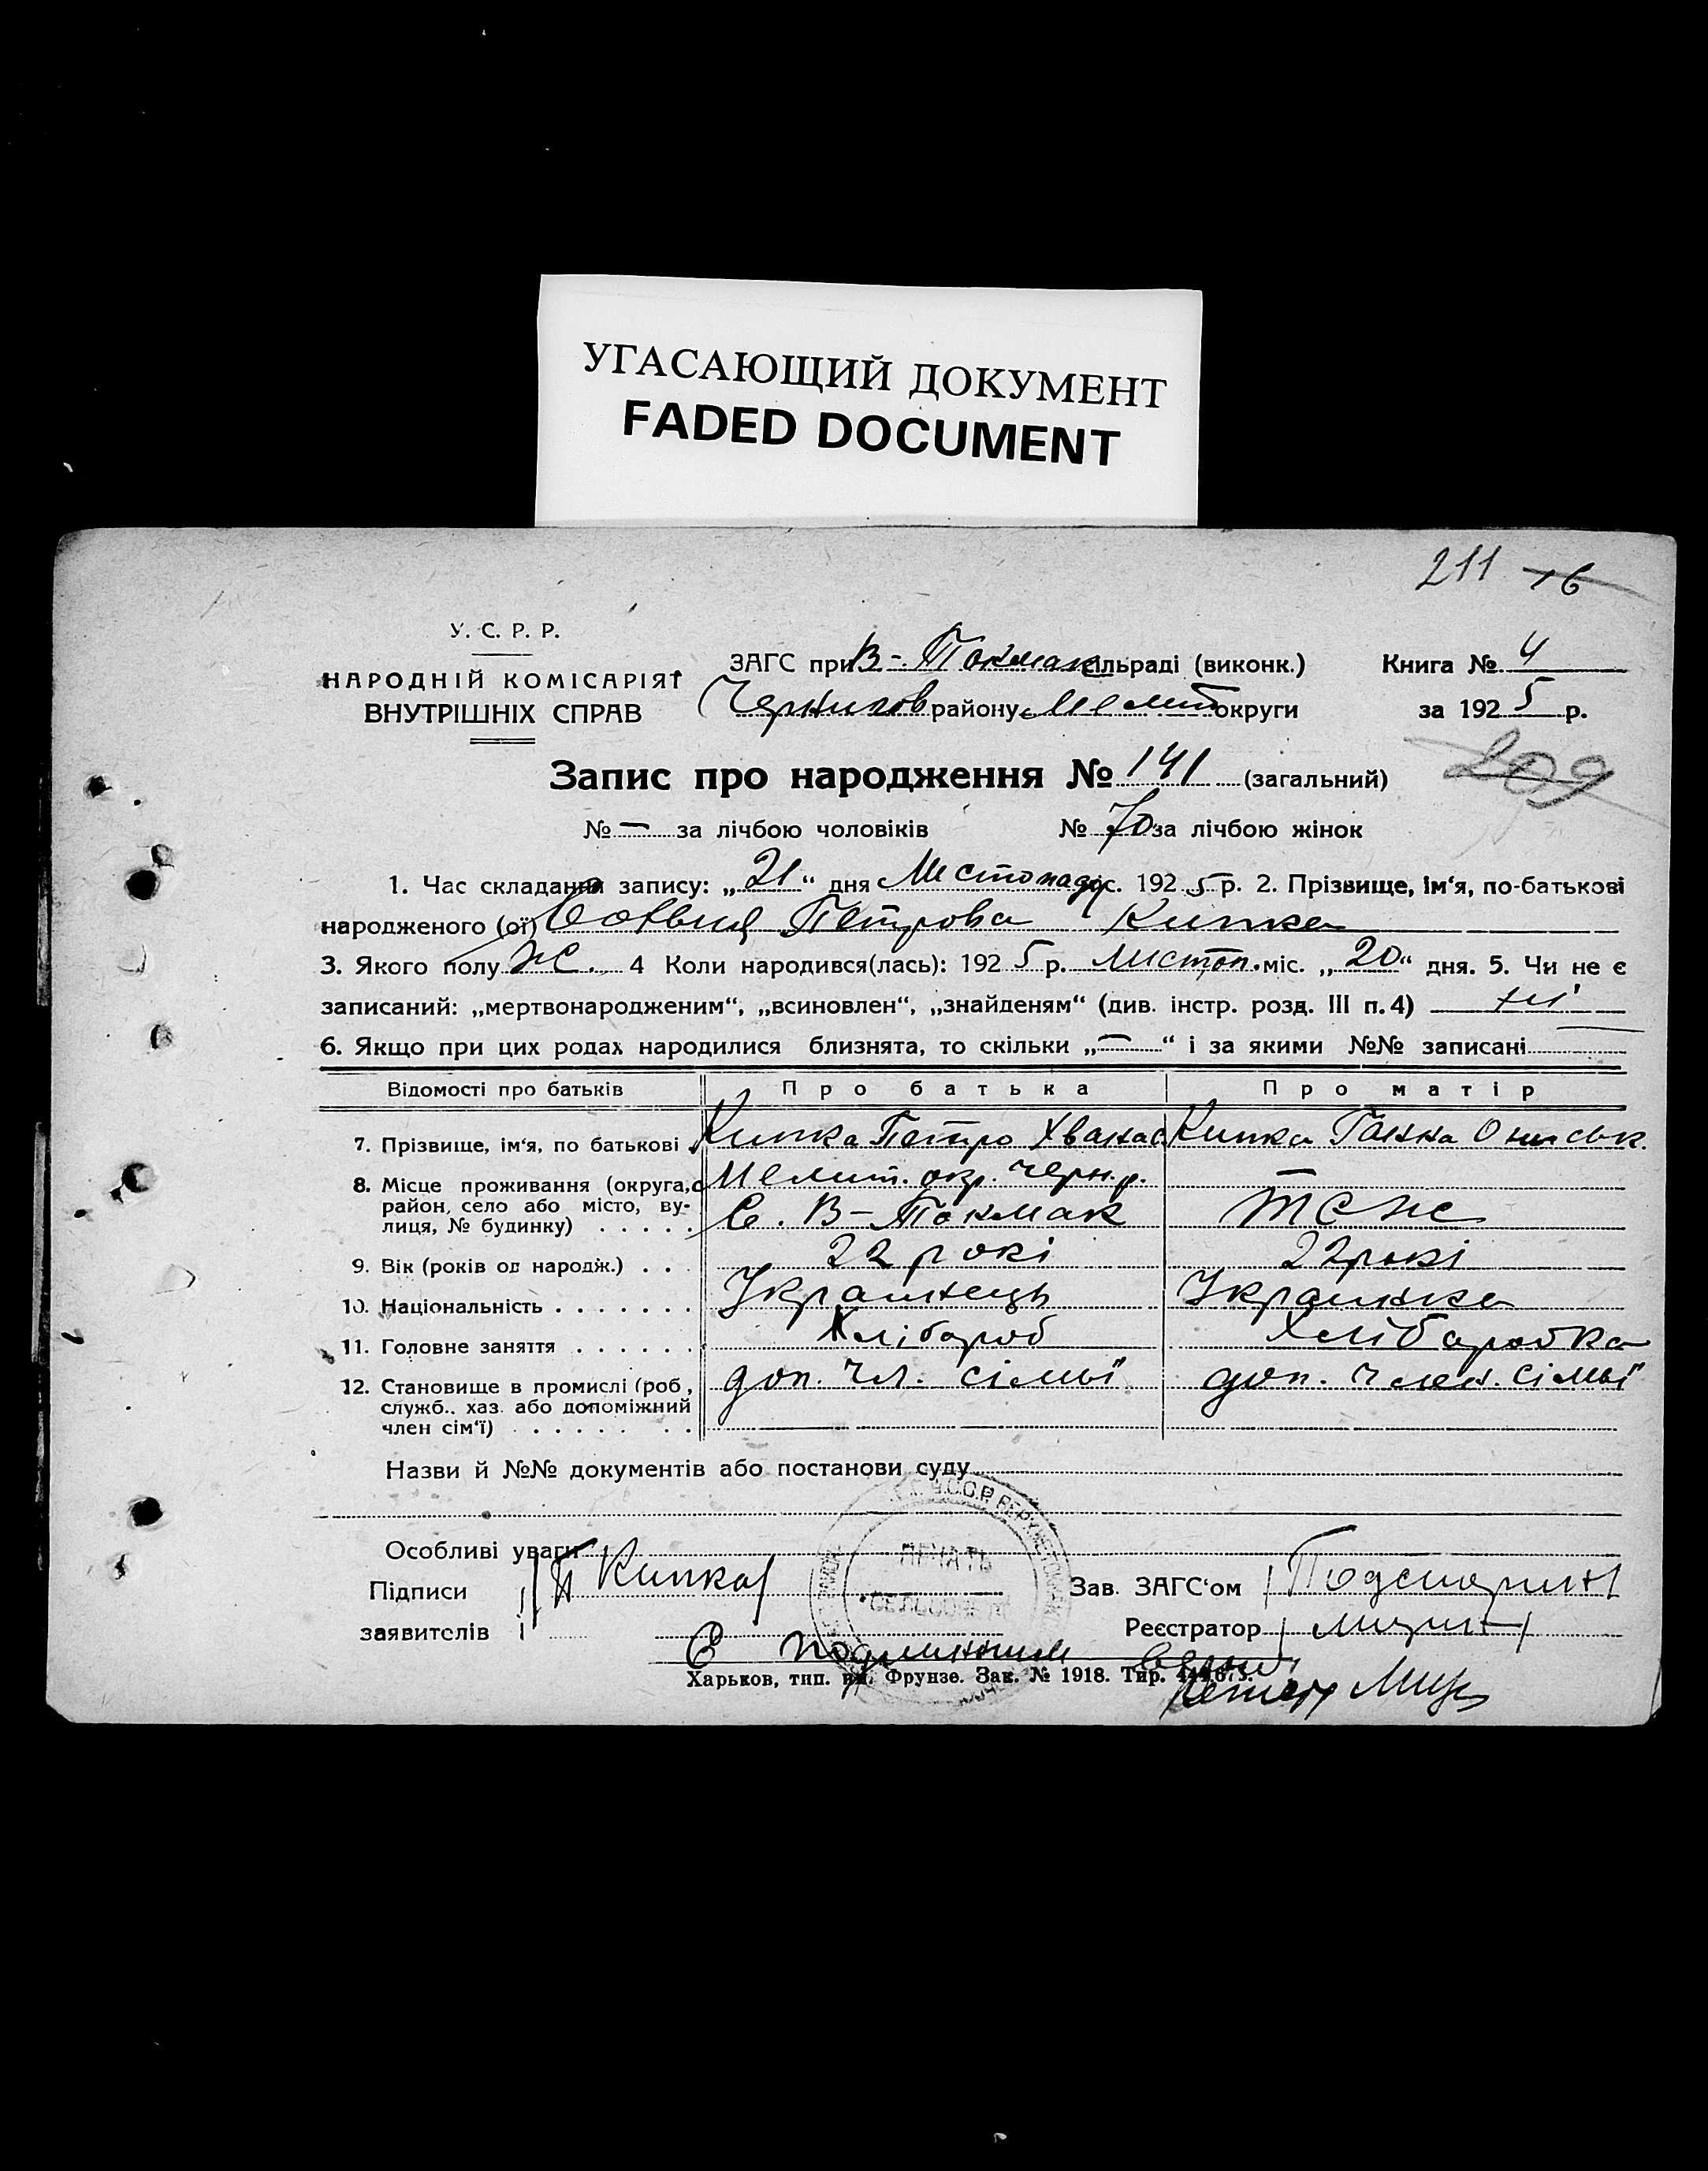 УГАСАЮЩИЙ ДОКУМЕНТ
FADED DOCUMENT
211 16
У. С. Р. Р.
НАРОДНІЙ КОМІСАРІЯТ
ВНУТРІШНІХ СПРАВ
ЗАГС при В-Токмак сільраді (виконк.)
Книга № 4
Чернигов району Меліт округи
за 1925 р.
Запис про народження № 141 (загальний)
209
№ — за лічбою чоловіків № 70 за лічбою жінок
1. Час складання запису: „21“ дня Листопада міс. 1925 р. 2. Прізвище, ім‘я, по-батькові
народженого (ої) Петрова Кипка
3. Якого полу ж. 4 Коли народився(лась): 1925 р. Листоп. міс. „20“ дня. 5. Чи не є
записаний: „мертвонародженим“, „всиновлен“, „знайденям“ (див. інстр. розд. III п. 4) ні
6. Якщо при цих родах народилися близнята, то скільки „—“ і за якими №№ записані
Відомості про батьків Про батька Про матір
7. Прізвище, ім‘я, по батькові Кипка Петро Хванас Кипка Ганна Ониськ.
8. Місце проживання (округа, район, село або місто, вулиця, № будинку) Мелит. окр. Черн. р.
С. В-Токмак теж
9. Вік (років од народж.) 22 рокі 22 рокі
10. Національність Українець Українка
11. Головне заняття Хлібороб Хлібаробка
12. Становище в промислі (роб., служб., хаз. або допоміжний член сім‘ї) доп. чл. сімьї доп. член. сімьї
Назви й №№ документів або постанови суду
Особливі уваги
Підписи П Кипка Зав. ЗАГС‘ом
заявителів Реєстратор
ПЕЧАТЬ
С подлинним
Харьков, тип. им. Фрунзе. Зак. № 1918. Тир.